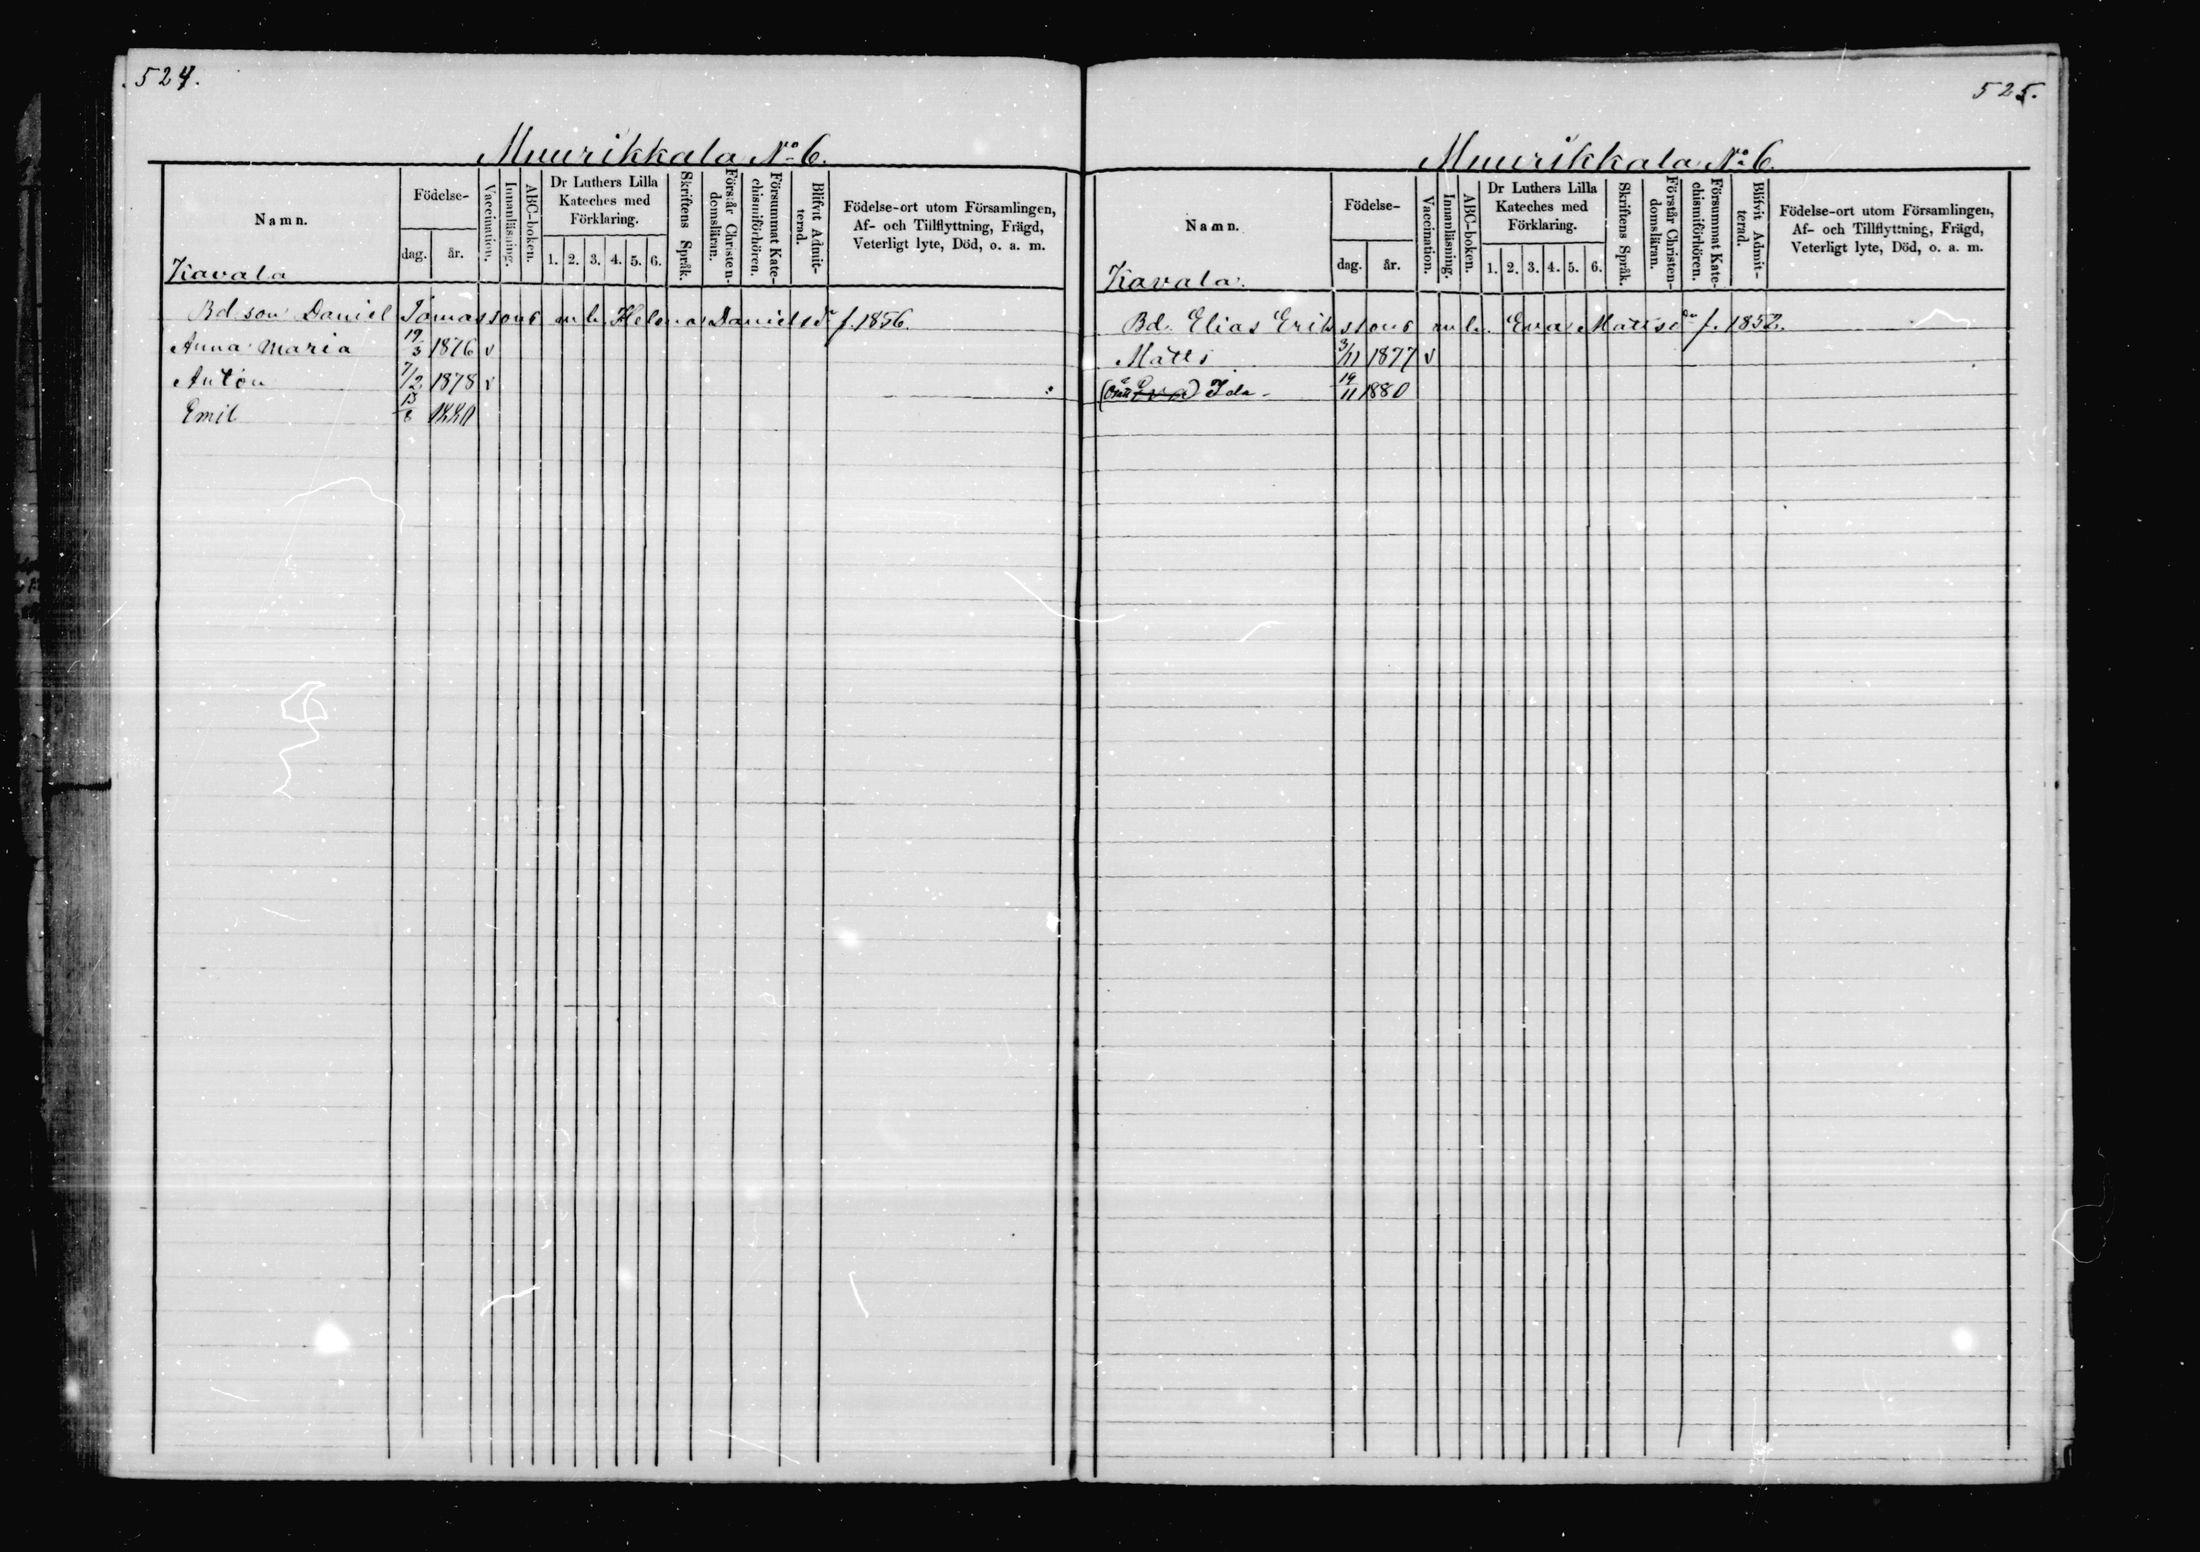 524.
Muurikkala No 6.
Namn.
Födelse-
dag.
år.
Vaccination.
Innanläsning.
ABC-boken.
Dr Luthers Lilla
Kateches med
Förklaring.
1. 2. 3. 4. 5. 6.
Skriftens Språk.
Förstår Christen-
domsläran.
Försummat Kate-
chismiförhören.
Blifvit Admit-
terad.
Födelse-ort utom Församlingen,
Af- och Tillflyttning, Frägd,
Veterligt lyte, Död, o. a. m.
Kavala
Bd. son Daniel Tomassons m. h. Helena Danielsdr f. 1856.
Anna Maria 19/3 1876 v
Anton 7/2 1878 v
Emil 1880
525.
Muurikkala No 6.
Namn.
Födelse-
dag.
år.
Vaccination.
Innanläsning.
ABC-boken.
Dr Luthers Lilla
Kateches med
Förklaring.
1. 2. 3. 4. 5. 6.
Skriftens Språk.
Förstår Christen-
domsläran.
Försummat Kate-
chismiförhören.
Blifvit Admit-
terad.
Födelse-ort utom Församlingen,
Af- och Tillflyttning, Frägd,
Veterligt lyte, Död, o. a. m.
Kavala.
Bd. Elias Erikssons m. h. Eva Mattsdr f. 1852.
Matts 3/11 1877 v
Ida 19/11 1880